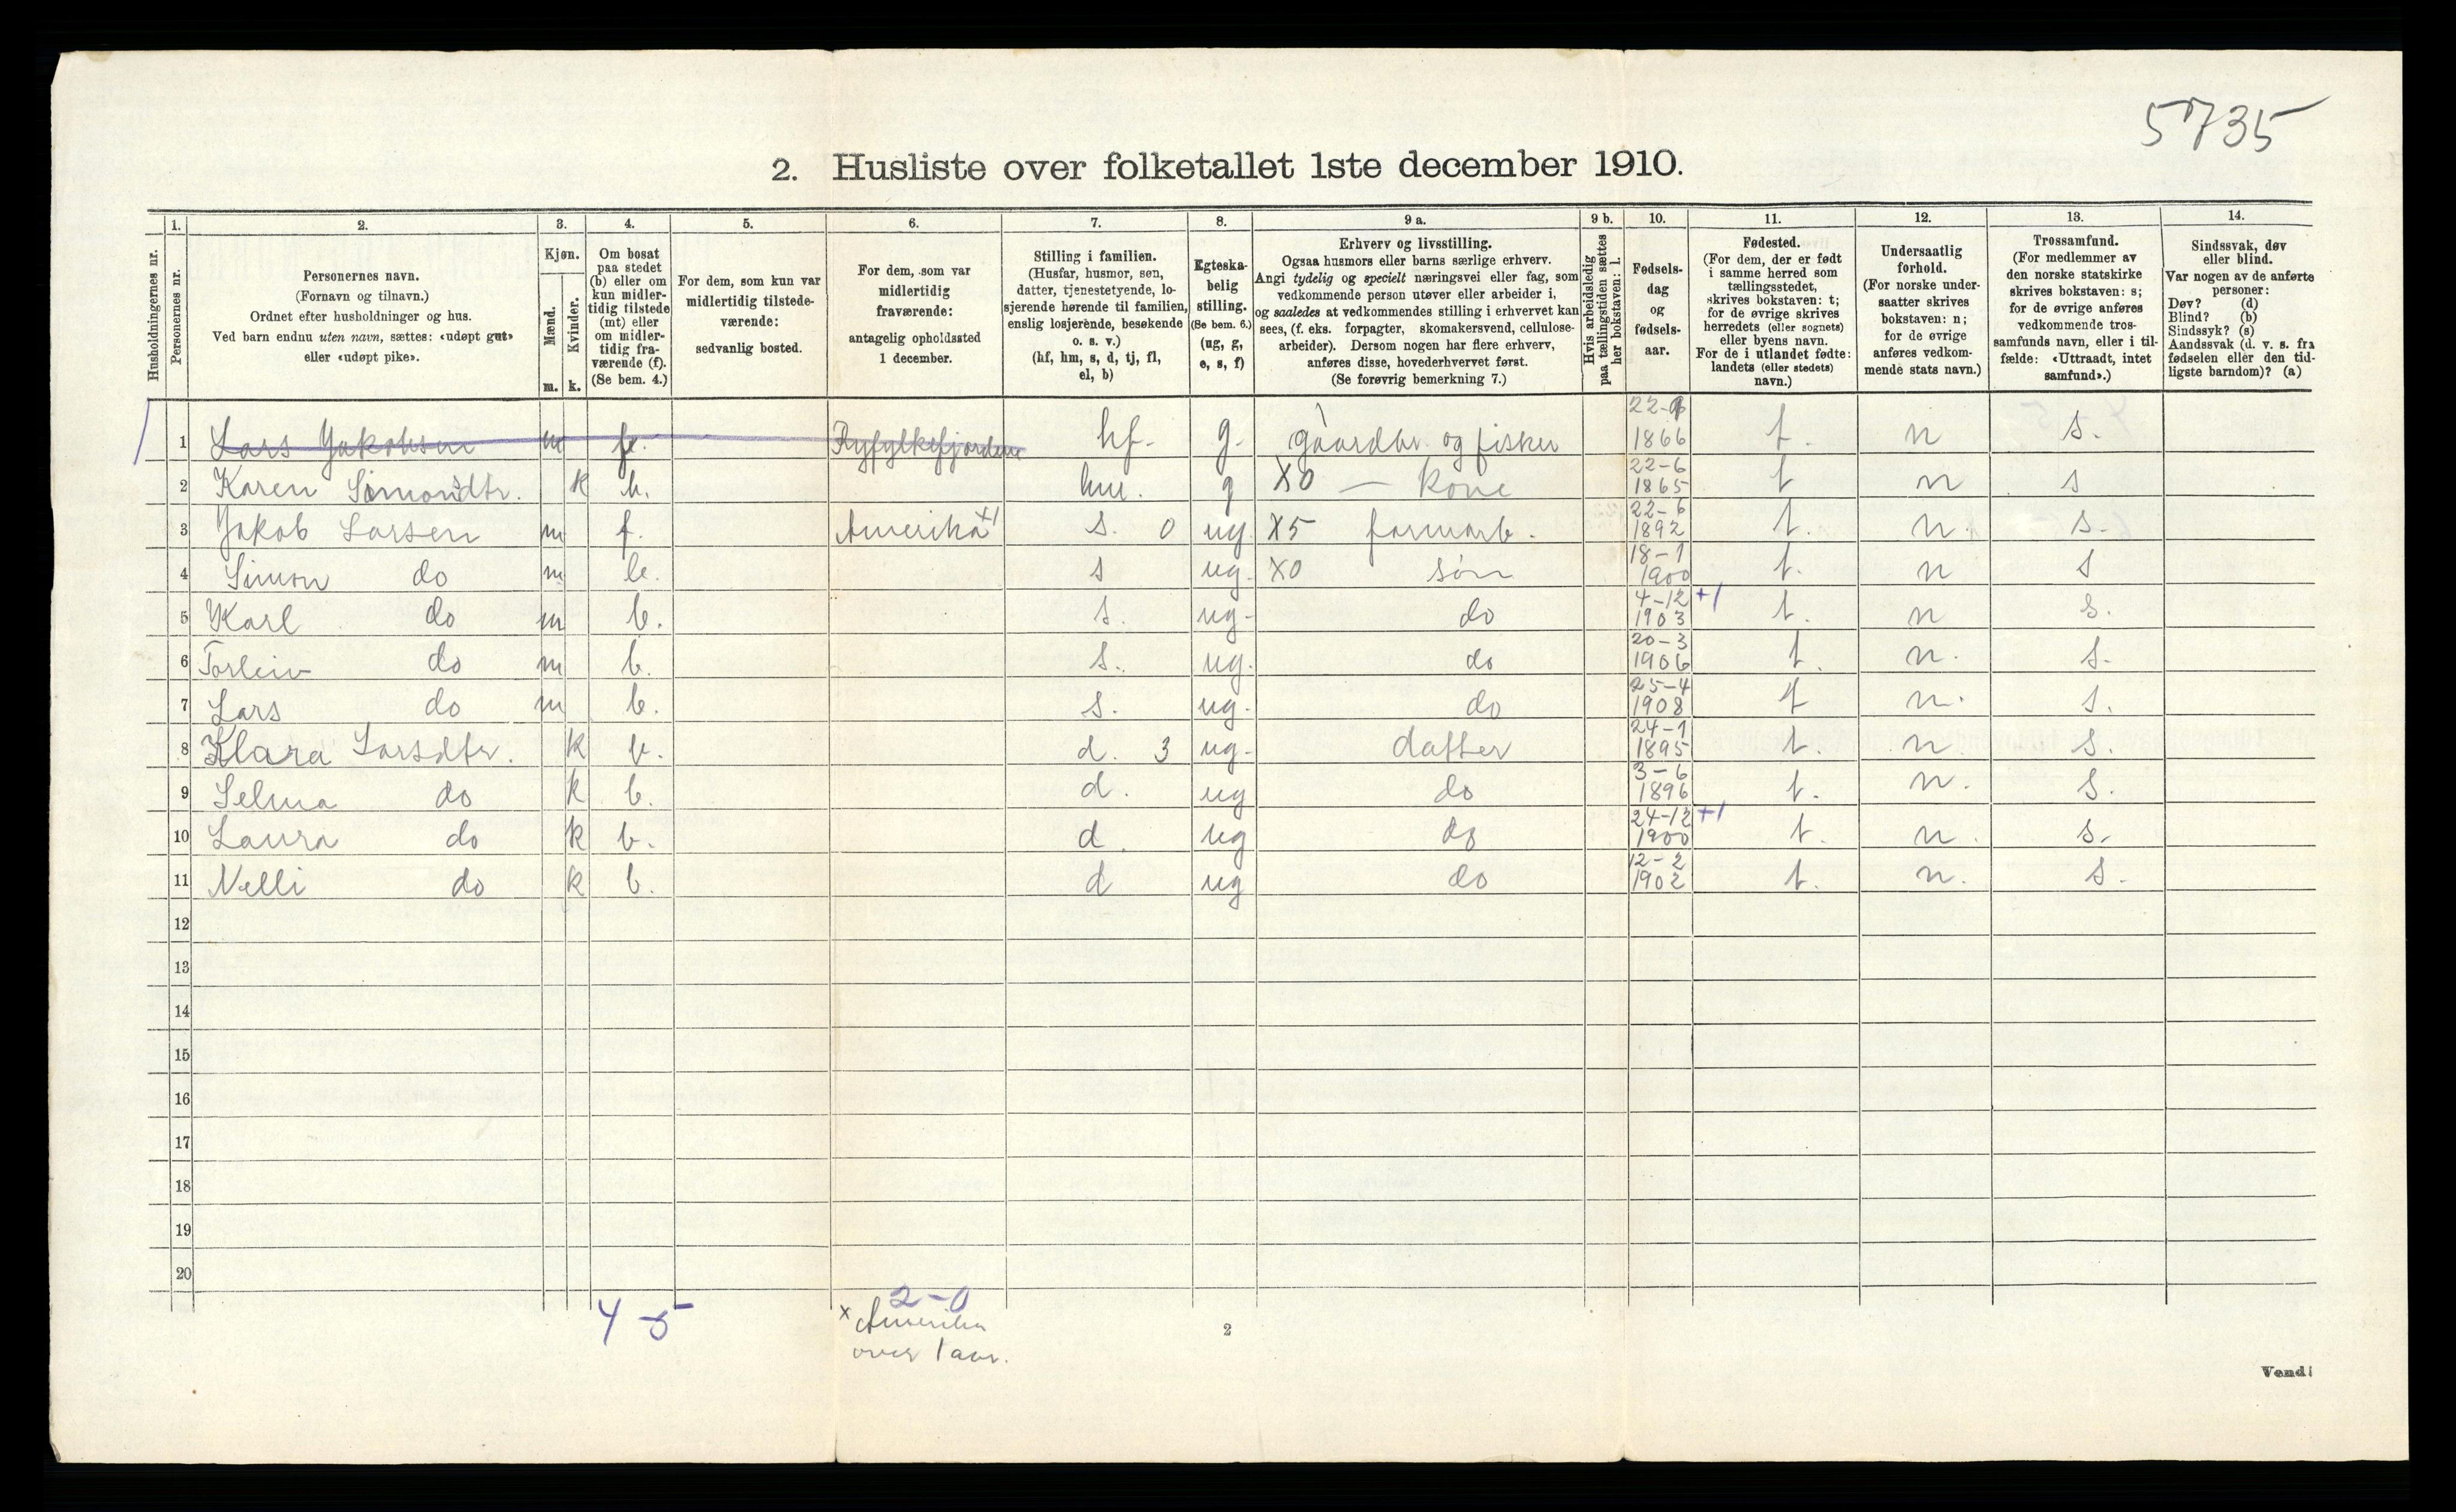 5735
2. Husliste over folketallet 1ste december 1910.
1. 2. 3. 4. 5. 6. 7. 8. 9 a. 9 b. 10. 11. 12. 13. 14.
Husholdningernes nr.
Personernes nr.
Personernes navn.
(Fornavn og tilnavn.)
Ordnet efter husholdninger og hus.
Ved barn endnu uten navn, sættes: «udøpt gut»
eller «udøpt pike».
Kjøn.
Mænd.
Kvinder.
m. k.
Om bosat
paa stedet
(b) eller om
kun midler-
tidig tilstede
(mt) eller
om midler-
tidig fra-
værende (f).
(Se bem. 4.)
For dem, som kun var
midlertidig tilstede-
værende:
sedvanlig bosted.
For dem, som var
midlertidig
fraværende:
antagelig opholdssted
1 december.
Stilling i familien.
(Husfar, husmor, søn,
datter, tjenestetyende, lo-
sjerende hørende til familien,
enslig losjerende, besøkende
o. s. v.)
(hf, hm, s, d, tj, fl,
el, b)
Egteska-
belig
stilling.
(Se bem. 6.)
(ug, g,
e, s, f)
Erhverv og livsstilling.
Ogsaa husmors eller barns særlige erhverv.
Angi tydelig og specielt næringsvei eller fag, som
vedkommende person utøver eller arbeider i,
og saaledes at vedkommendes stilling i erhvervet kan
sees, (f. eks. forpagter, skomakersvend, cellulose-
arbeider). Dersom nogen har flere erhverv,
anføres disse, hovederhvervet først.
(Se forøvrig bemerkning 7.)
Hvis arbeidsledig
paa tællingstiden sættes
her bokstaven: l.
Fødsels-
dag
og
fødsels-
aar.
Fødested.
(For dem, der er født
i samme herred som
tællingsstedet,
skrives bokstaven: t;
for de øvrige skrives
herredets (eller sognets)
eller byens navn.
For de i utlandet fødte:
landets (eller stedets)
navn.)
Undersaatlig
forhold.
(For norske under-
saatter skrives
bokstaven: n;
for de øvrige
anføres vedkom-
mende stats navn.)
Trossamfund.
(For medlemmer av
den norske statskirke
skrives bokstaven: s;
for de øvrige anføres
vedkommende tros-
samfunds navn, eller i til-
fælde: «Uttraadt, intet
samfund».)
Sindssvak, døv
eller blind.
Var nogen av de anførte
personer:
Døv? (d)
Blind? (b)
Sindssyk? (s)
Aandssvak (d. v. s. fra
fødselen eller den tid-
ligste barndom)? (a)
1 Lars Jakobsen m Ryfylkefjorden hf. g. gaardbr. og fisker 1866 t. n s.
2 Karen Simondtr. k b. hm. g X0 — kone 22-6 1865 t n s
3 Jakob Larsen m f. Amerika x1 s. 0 ug. X5 farmarb. 22-6 1892 t. n. s.
4 Simon do m b. s ug. X0 søn 18-1 1900 t. n s
5 Karl do m b. s. ug. do 4-12 1903 +1 t. n s.
6 Torleiv do m b. s. ug. do 20-3 1906 t. n. s.
7 Lars do m b. s. ug. do 25-4 1908 t n. s.
8 Klara Larsdtr. k b. d. 3 ug. datter 24-1 1895 t. n. s.
9 Selma do k b. d. ug do 3-6 1896 t. n. s.
10 Laura do k b. d. ug do 24-12 1900 +1 t. n. s.
11 Nelli do k b. d ug do 12-2 1902 t. n. s.
12
13
14
15
16
17
18
19
20
4-5
2-0
x Amerika
over 1 aar.
2
Vend!